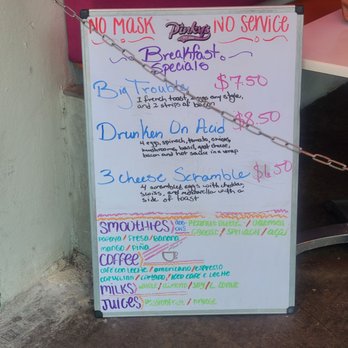 NO MASK Pinky's NO SERVICE
Breakfast
Specials
Big Trouble $7.50
1 french toast, 2 eggs any style,
and 2 strips of bacon
Drunken On Acid $8.50
4 eggs, spinach, tomato, onions,
mushrooms, basil, goat cheese,
bacon and hot sauce in a wrap
3 Cheese Scramble $1.50
4 scrambled eggs with cheddar,
swiss, and mozzarella with a
side of toast
SMOOTHIES
Peanut Butter / Oatmeal
/ Spinach / açai
Papaya / Fresa / Banana
mango / Piña
COFFEE
cafe con leche / americano / espresso
capuccino / cortado / iced cafe c leche
MILKS whole / almond / soy / L.
JUICES Passionfruit /